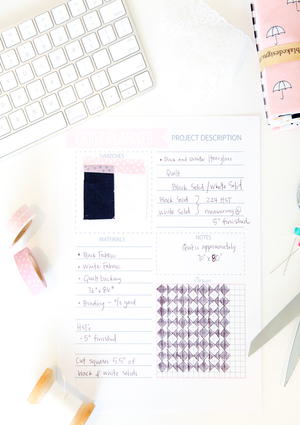 PROJECT DESCRIPTION
SWATCHES
Black and White
Quilt
Black Solid / White Solid
Black Solid } 224 HST
White Solid measuring @
5" finished
MATERIALS
• Black Fabric
• White Fabric
• Quilt backing
• Binding - yard
NOTES
Quilt is approximately
70" x 80"
HSTs
- 5" finished
Cut squares 5.5" of
black & white solids